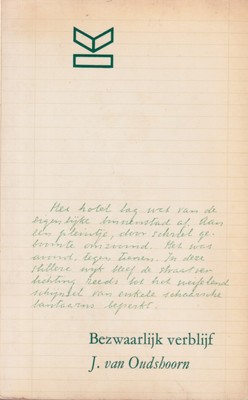 Het hotel lag wat van de
eigenlijke binnenstad af. Aan
een pleintje, door schriel ge-
boomte omzoomd. Het was
avond tegen tienen. In deze
stillere wijk bleef de straatver-
lichting reeds tot het weifelend
schijnsel van enkele schaarsche
lantaarns beperkt.
Bezwaarlijk verblijf
J. van Oudshoorn